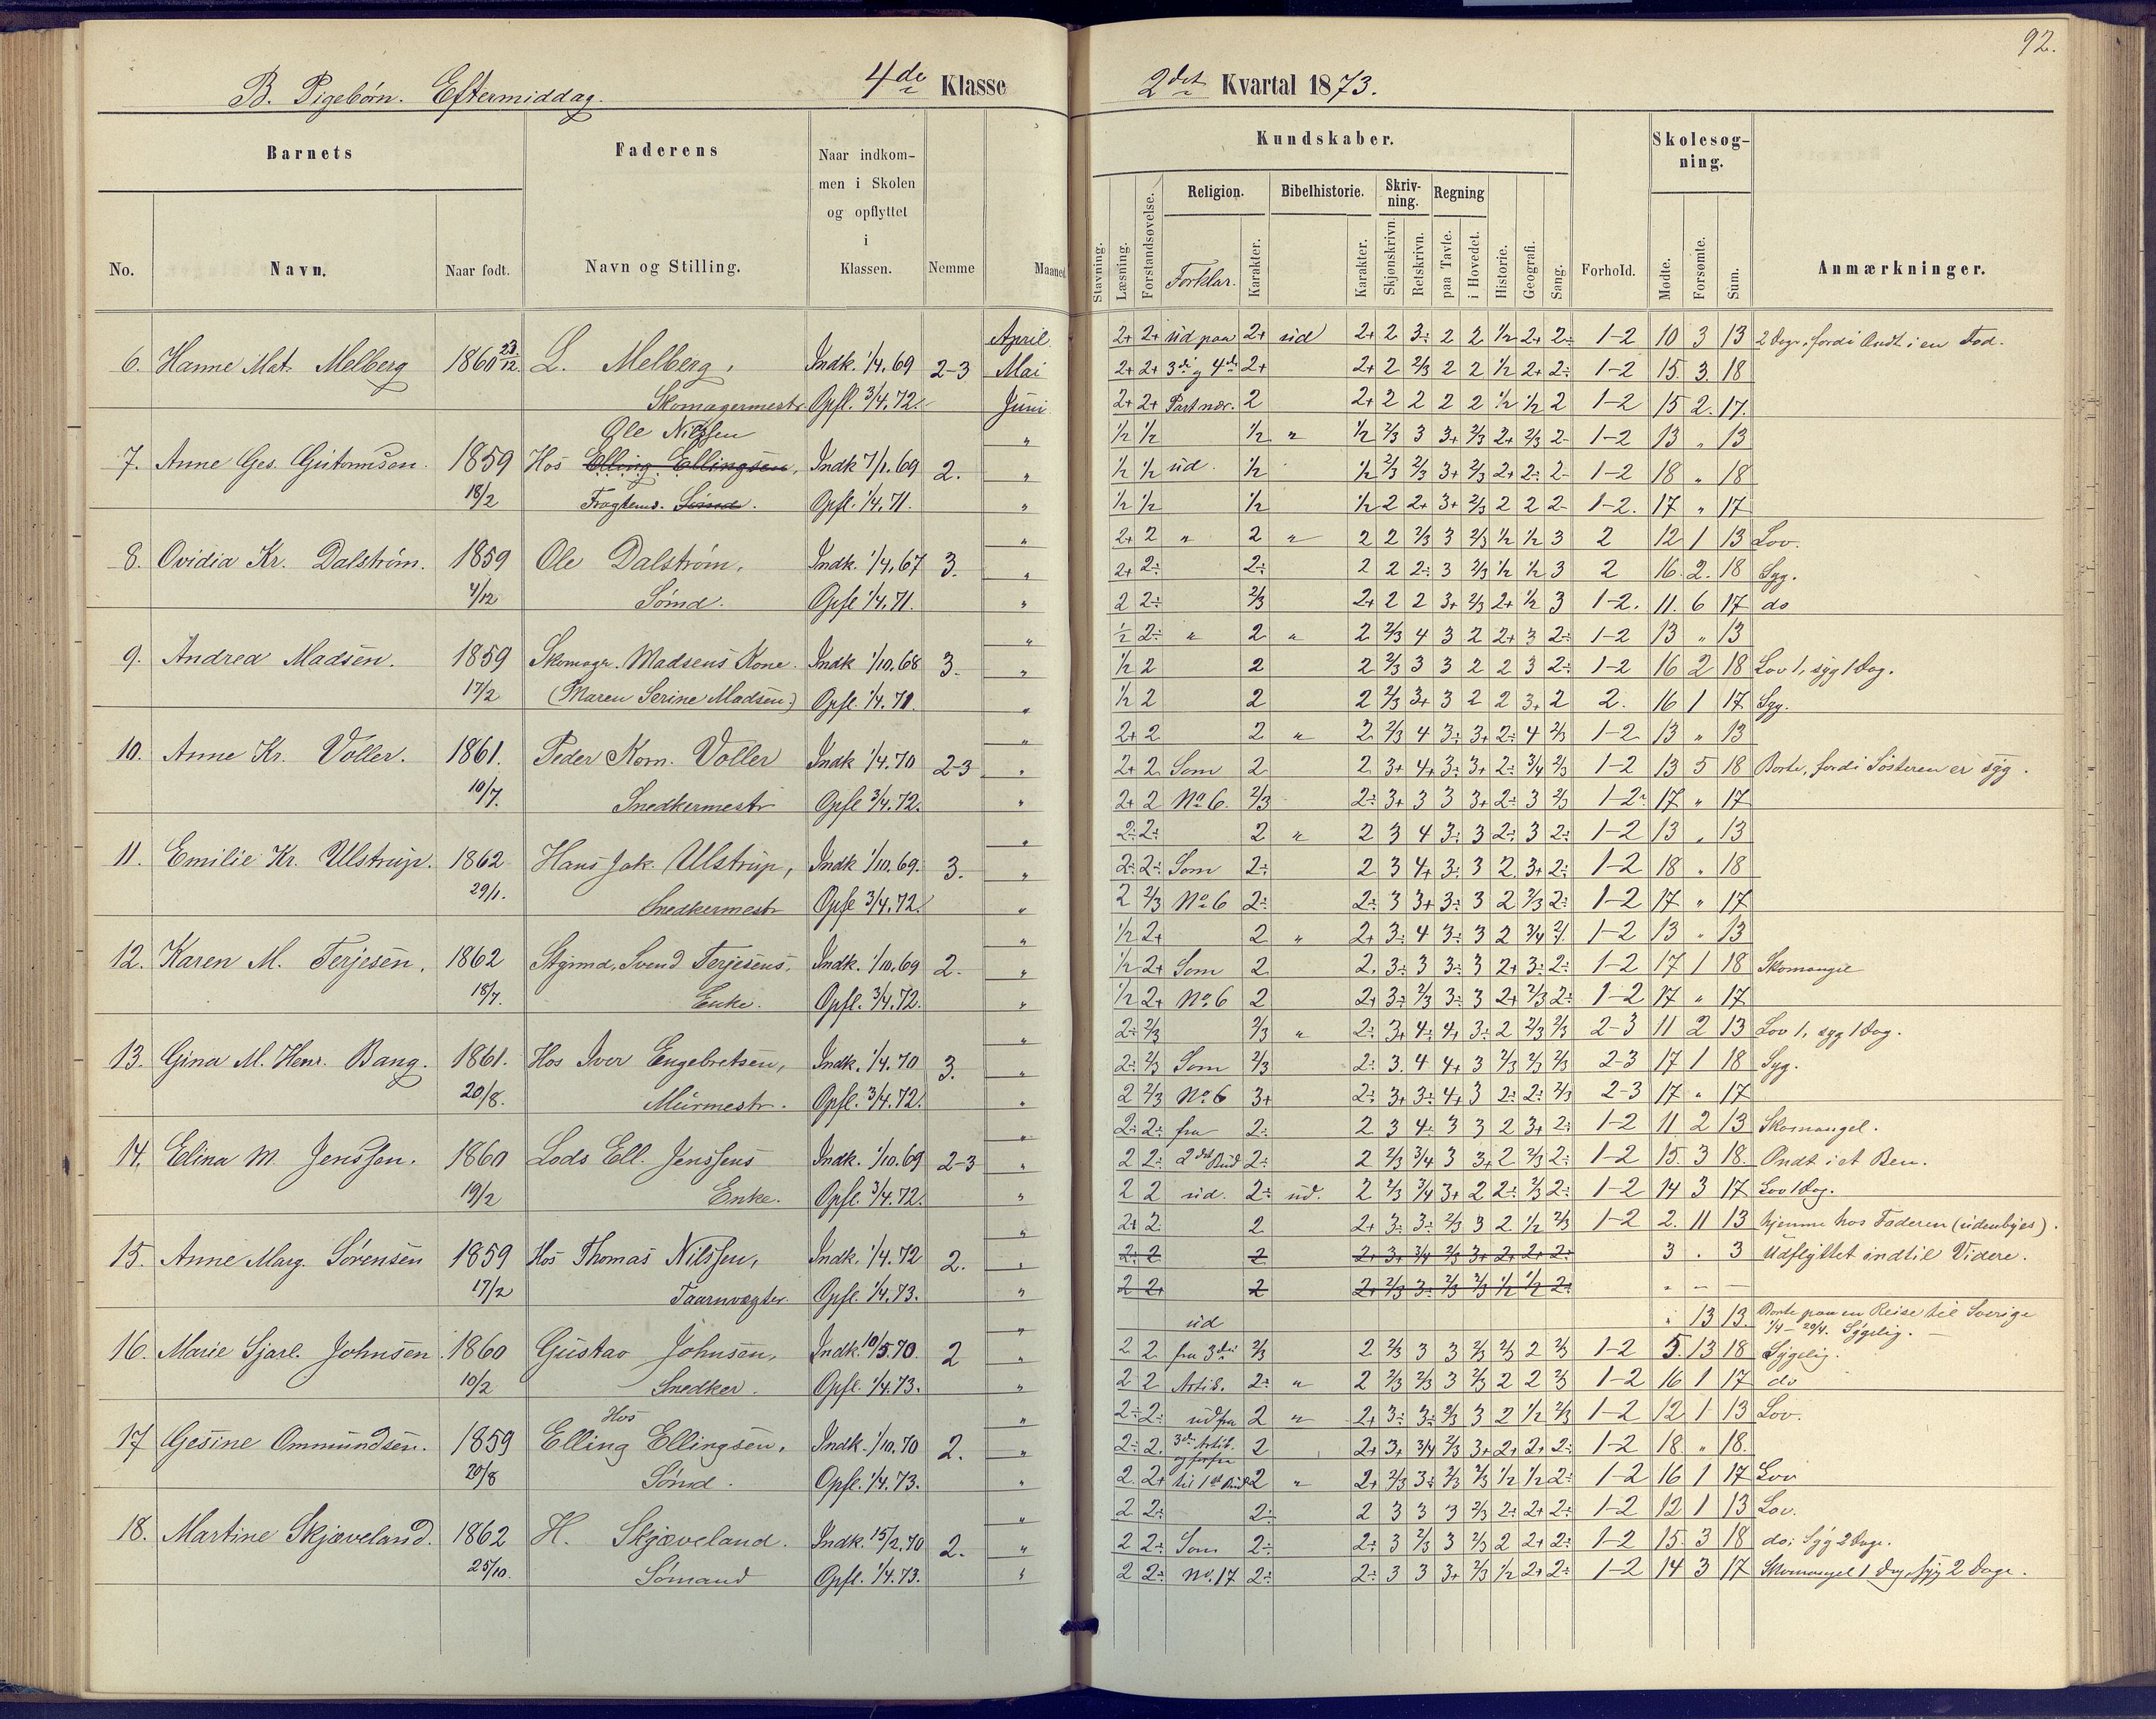 92.
B. Pigebørn. Eftermiddag. 4de Klasse
2det Kvartal 1873.
Barnets
Faderens
Naar indkom-
men i Skolen
og opflyttet
i
Klassen.
No. Navn. Naar født. Navn og Stilling. Nemme Maaned
Kundskaber.
Skolesøg-
ning.
Religion. Bibelhistorie. Skriv-
ning. Regning
Stavning. Læsning. Forstandsøvelse. Forklar. Karakter. Karakter. Skjønskrivn. Retskrivn. paa Tavle. i Hovedet. Historie. Geografi. Sang. Forhold. Mødte. Forsømte. Sum. Anmærkninger.
6. Hanne Mat. Melberg 1860 23/12. L. Melberg, Skomagermestr Indk. 1/4.69 Opfl. 3/4.72. 2-3
April 2+ 2+ ud paa 2+ ud 2+ 2 3÷ 2 2 1/2 2+ 2÷ 1-2 10 3 13 2 Dage, fordi Ondt i en Fod.
Mai 2+ 2+ 3die og 4de 2+ 2+ 2 2/3 2 2 1/2 2+ 2÷ 1-2 15 3 18
Juni 2+ 2+ Part nær. 2 2+ 2 2 2 2 1/2 1/2 2 1-2 15 2 17
7. Anne Ges. Gutormsen. 1859 18/2 Hos Ole Nilssen Elling Ellingsen, Fragtemd. Sømd. Indk 7/1.69 Opfl. 1/4.71. 2.
" 1/2 1/2 1/2 " 1/2 2/3 3 3+ 2/3 2+ 2/3 2- 1-2 13 " 13
" 1/2 1/2 ud. 1/2 1/2 2/3 2/3 3+ 2/3 2+ 2÷ 2- 1-2 18 " 18
" 1/2 1/2 1/2 1/2 2 2+ 3+ 2/3 2 2 2- 1-2. 17 " 17
8. Ovidia Kr. Dalstrøm. 1859 4/12 Ole Dalstrøm, Sømd. Indk. 1/4.67 Opfl 1/4.71. 3.
" 2+ 2 " 2 " 2 2 2/3 3 2/3 1/2 1/2 3 2 12 1 13 Lov.
" 2+ 2÷ 2÷ 2 2 2÷ 3 2/3 1/2 1/2 3 2 16. 2. 18 Syg.
" 2 2÷ 2/3 2+ 2 2 3+ 2/3 2+ 1/2 3 1-2. 11. 6 17 do
9. Andrea Madsen. 1859 17/2 Skomagr. Madsens Kone. (Maren Serine Madsen.) Indk 1/10.68 Opfl. 1/4.71. 3.
" 1/2 2÷ " 2 " 2 2/3 4 3 2 2+ 3 2÷ 1-2 13 " 13
" 1/2 2 2 2 2/3 3 3 2 2 3 2÷ 1-2 16 2 18 Lov 1, syg 1 Dag.
" 1/2 2 2 2 2/3 3+ 3 2 2 3+ 2 2. 16 1 17 Syg.
10. Anne Kr. Voller. 1861. 10/7. Peder Korn. Voller Snedkermestr Indk 1/4.70 Opfl 3/4.72. 2-3
" 2+ 2 2 " 2 2/3 4 3÷ 3+ 2÷ 4 2/3 1-2 13 " 13
" 2+ 2 Som 2 2 3+ 4+ 3÷ 3+ 2÷ 3/4 2/3 1-2 13 5 18 Borte, fordi Søsteren er syg.
" 2+ 2 No 6. 2/3 2÷ 3+ 3 3 3+ 2÷ 3 2/3 1-2 17 " 17
11. Emilie Kr. Ulstrup. 1862 29/1. Hans Jak. Ulstrup, Snedkermestr Indk 1/10.69. Opfl 3/4.72. 3.
" 2÷ 2÷ 2 " 2 3 4 3÷ 3 2÷ 3 2÷ 1-2 13 " 13
" 2÷ 2÷ Som 2÷ 2 3 4+ 3÷ 3 2 3+ 2÷ 1-2 18 " 18
" 2 2/3 No 6 2÷ 2÷ 3 3+ 3÷ 3 2 2/3 2÷ 1-2 17 " 17
12. Karen M. Terjesen, 1862 18/7. Stymd. Svend Terjesens, Enke. Indk. 1/10.69 Opfl. 3/4.72. 2.
" 1/2 2+ 2 " 2+ 3÷ 4 3÷ 3 2 3/4 2/ 1-2 13 " 13
" 1/2 2+ Som 2 2 3÷ 3 3÷ 3 2+ 3÷ 2÷ 1-2 17 1 18 Skomangel
" 1/2 2+ No 6 2 2+ 3÷ 2/3 3÷ 3 2+ 2/3 2÷ 1-2 17 " 17
13. Gina M. Henr. Bang. 1861. 20/8. Hos Iver Engebretsen, Murmestr. Indk. 1/4.70 Opfl. 3/4.72. 3.
" 2÷ 2/3 2/3 " 2÷ 3+ 4÷ 4+ 3÷ 2 2/3 2/3 2-3 11 2 13 Lov 1, syg 1 Dag.
" 2÷ 2/3 Som 2/3 2÷ 3. 4 4+ 3 2/3 2/3 2/3 2-3 17 1 18 Syg.
" 2 2/3 No 6 3+ 2÷ 3+ 3÷ 4+ 3 2÷ 2÷ 2/3 2-3 17 " 17
14. Elina M. Jenssen. 1860 19/2 Lods Ell. Jenssens Enke. Indk. 1/10.69 Opfl. 3/4.72. 2-3
" 2÷ 2÷ fra 2÷ 2 3 4÷ 3 3 2 3+ 2÷ 1-2 11 2 13 Skomangel.
" 2 2÷ 2det Bud 2÷ 2 2/3 3/4 3 3+ 2 2/3 2÷ 1-2 15. 3 18. Ondt i et Ben.
" 2 2 ud. 2÷ ud. 2 2/3 3/4 3+ 2 2÷ 2/3 2÷ 1-2 14 3 17 Lov 1 Dag.
15. Anne Marg. Sørensen 1859 17/2 Hos Thomas Nilssen, Taarnvægter. Indk. 1/4.72 Opfl. 1/4.73. 2.
" 2+ 2 2 2+ 3÷ 3÷ 2/3 3 2 1/2 2/3 1-2 2. 11 13 hjemme hos Faderen (udenbyes).
" 2÷ 2 2 2+ 3+ 3/4 2/3 3+ 2+ 2+ 2÷ 3 . 3 Udflyttet indtil Videre.
" 2 2+ 2 2+ 2/3 3÷ 2/3 2/3 1/2 1/2 2÷ " — —
16. Marie Sjarl. Johnsen. 1860 10/2 Gustav Johnsen, Snedker. Indk. 10/5.70. Opfl. 1/4.73. 2
" ud " 13 13. Borte paa en Reise til Sverige
1/4 — 20/4. Sygelig. —
" 2 2 fra 3die 2/3 2 2/3 3 3 2/3 2/3 2 2/3 1-2 5 13 18 Sygelig.
" 2 2 Artik. 2÷ " 2 2/3 2/3 3 2/3 2 2 2/3 1-2 16 1 17 do
17 Gesine Ommundsen. 1859 20/8 Hos Elling Ellingsen, Sømd. Indk. 1/10.70 Opfl. 1/4.73. 2.
" 2÷ 2÷ ud fra 2 " 2+ 3÷ 3÷ 2/3 3 2 1/2 2/3 1-2 12 1 13 Lov.
" 2÷ 2. 3die Artik. 2 2+ 3+ 3/4 2/3 3+ 2+ 2+ 2÷ 1-2 18. " 18.
" 2 2+ til 1ste Bud 2 " 2+ 2/3 3÷ 2/3 2/3 1/2 1/2 2÷ 1-2 16 1 17 Lov
18. Martine Skjæveland. 1862 25/10. H. Skjæveland. Sømand Indk. 15/2.70 Opfl. 1/4.73. 2.
" 2 2÷ 2÷ 2 3 3 3 2/3 2÷ 2+ 2÷ 1-2 12 1 13 Lov.
" 2 2÷ Som 2÷ 2÷ 3 2/3 3 2/3 2 2+ 2÷ 1-2 15. 3 18 do; Syg 2 Dage.
" 2 2÷ No. 17 2÷ 2÷ 3 3 3+ 2/3 1/2 2+ 2÷ 1-2 14 3 17 Skomangel 1 Dag, syg 2 Dage.